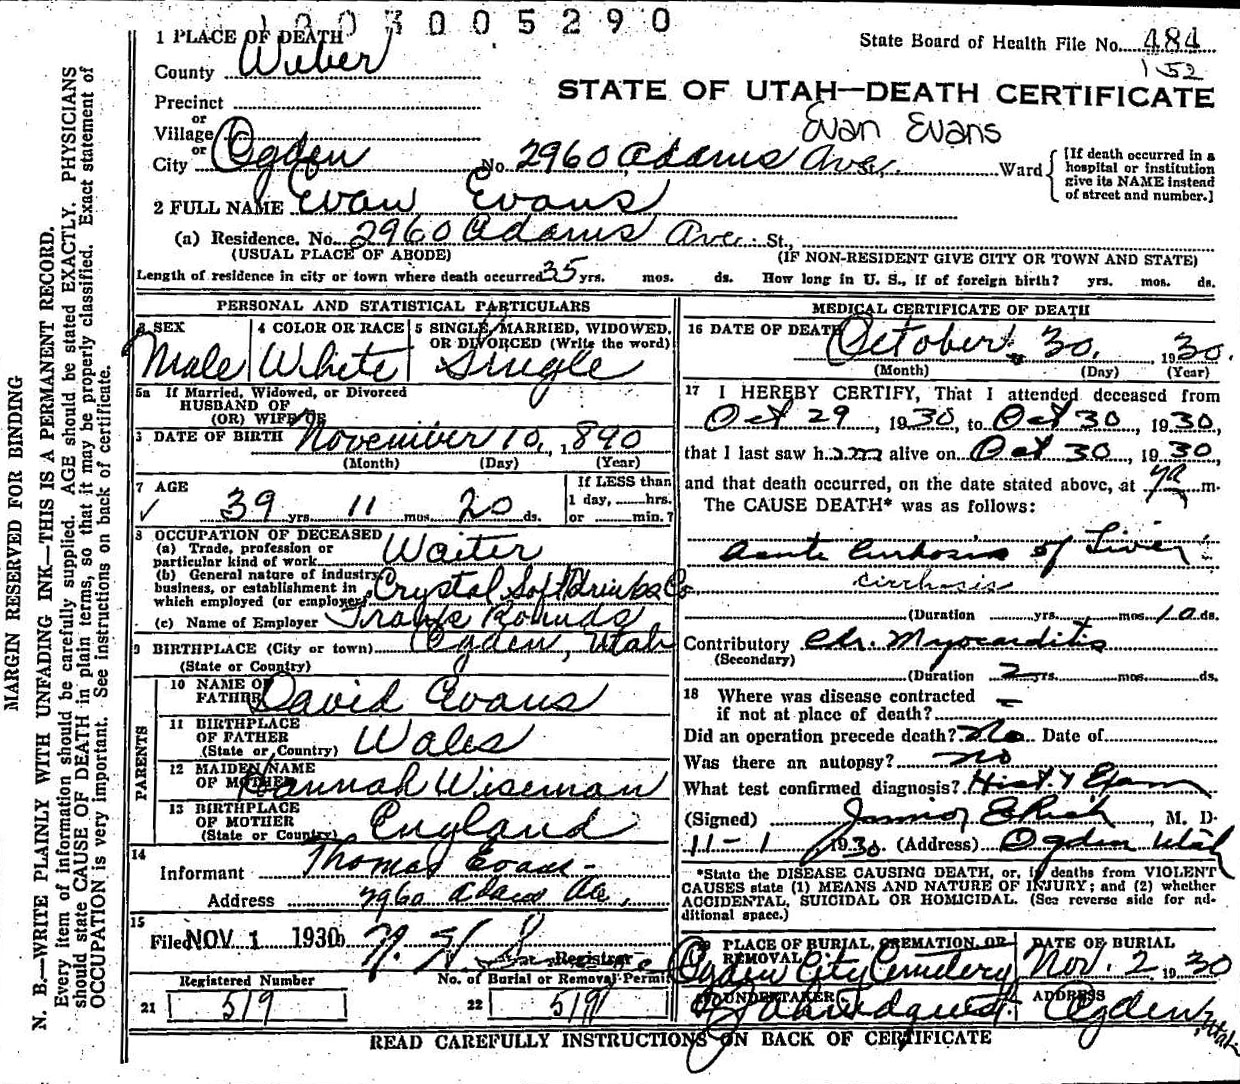 1003005290
1 PLACE OF DEATH
State Board of Health File No. 484
152
County Weber
STATE OF UTAH—DEATH CERTIFICATE
Precinct
or
Village
Evan Evans
or
City Ogden No. 2960 Adams Ave. Ward
[If death occurred in a
hospital or institution
give its NAME instead
of street and number.]
2 FULL NAME Evan Evans
(a) Residence. No. 2960 Adams Ave. St.,
(USUAL PLACE OF ABODE) (IF NON-RESIDENT GIVE CITY OR TOWN AND STATE)
Length of residence in city or town where death occurred 35 yrs. mos. ds. How long in U. S., if of foreign birth? yrs. mos. ds.
PERSONAL AND STATISTICAL PARTICULARS
3 SEX
Male
4 COLOR OR RACE
White
5 SINGLE, MARRIED, WIDOWED,
OR DIVORCED (Write the word)
Single
5a If Married, Widowed, or Divorced
HUSBAND OF
(OR) WIFE OF
6 DATE OF BIRTH November 10, 1890
(Month) (Day) (Year)
7 AGE
39 yrs. 11 mos. 20 ds.
If LESS than
1 day, hrs.
or min.?
8 OCCUPATION OF DECEASED
(a) Trade, profession or
particular kind of work Waiter
(b) General nature of industry,
business, or establishment in
which employed (or employer) Crystal Soft Drinks Co
(c) Name of Employer Frank
9 BIRTHPLACE (City or town) Ogden, Utah
(State or Country)
PARENTS
10 NAME OF
FATHER David Evans
11 BIRTHPLACE
OF FATHER
(State or Country) Wales
12 MAIDEN NAME
OF MOTHER Hannah Wiseman
13 BIRTHPLACE
OF MOTHER
(State or Country) England
14
Informant Thomas Evans
Address 2960 Adams Ave.
15
Filed NOV 1 1930
Registrar
Registered Number
21 519
No. of Burial or Removal Permit
22 519
MEDICAL CERTIFICATE OF DEATH
16 DATE OF DEATH October 30, 1930.
(Month) (Day) (Year)
17 I HEREBY CERTIFY, That I attended deceased from
Oct 29, 1930, to Oct 30, 1930,
that I last saw h im alive on Oct 30, 1930
and that death occurred, on the date stated above, at m.
The CAUSE DEATH* was as follows:
Acute Cirrhosis of Liver
cirrhosis
(Duration yrs. mos. 10 ds.
Contributory Chr. Myocarditis
(Secondary)
(Duration 2 yrs. mos. ds.
18 Where was disease contracted
if not at place of death? —
Did an operation precede death? No Date of
Was there an autopsy? no
What test confirmed diagnosis? Hist & Exam
(Signed) Junior E Rich, M. D.
11-1 1930 (Address) Ogden Utah
*State the DISEASE CAUSING DEATH, or, in deaths from VIOLENT
CAUSES state (1) MEANS AND NATURE OF INJURY; and (2) whether
ACCIDENTAL, SUICIDAL OR HOMICIDAL. (See reverse side for ad-
ditional space.)
19 PLACE OF BURIAL, CREMATION, OR
REMOVAL
Ogden City Cemetery
DATE OF BURIAL
Nov. 2 1930
20 UNDERTAKER
ADDRESS
Ogden, Utah
READ CAREFULLY INSTRUCTIONS ON BACK OF CERTIFICATE
MARGIN RESERVED FOR BINDING
N. B.—WRITE PLAINLY WITH UNFADING INK—THIS IS A PERMANENT RECORD.
Every item of information should be carefully supplied. AGE should be stated EXACTLY. PHYSICIANS
should state CAUSE OF DEATH in plain terms, so that it may be properly classified. Exact statement of
OCCUPATION is very important. See instructions on back of certificate.